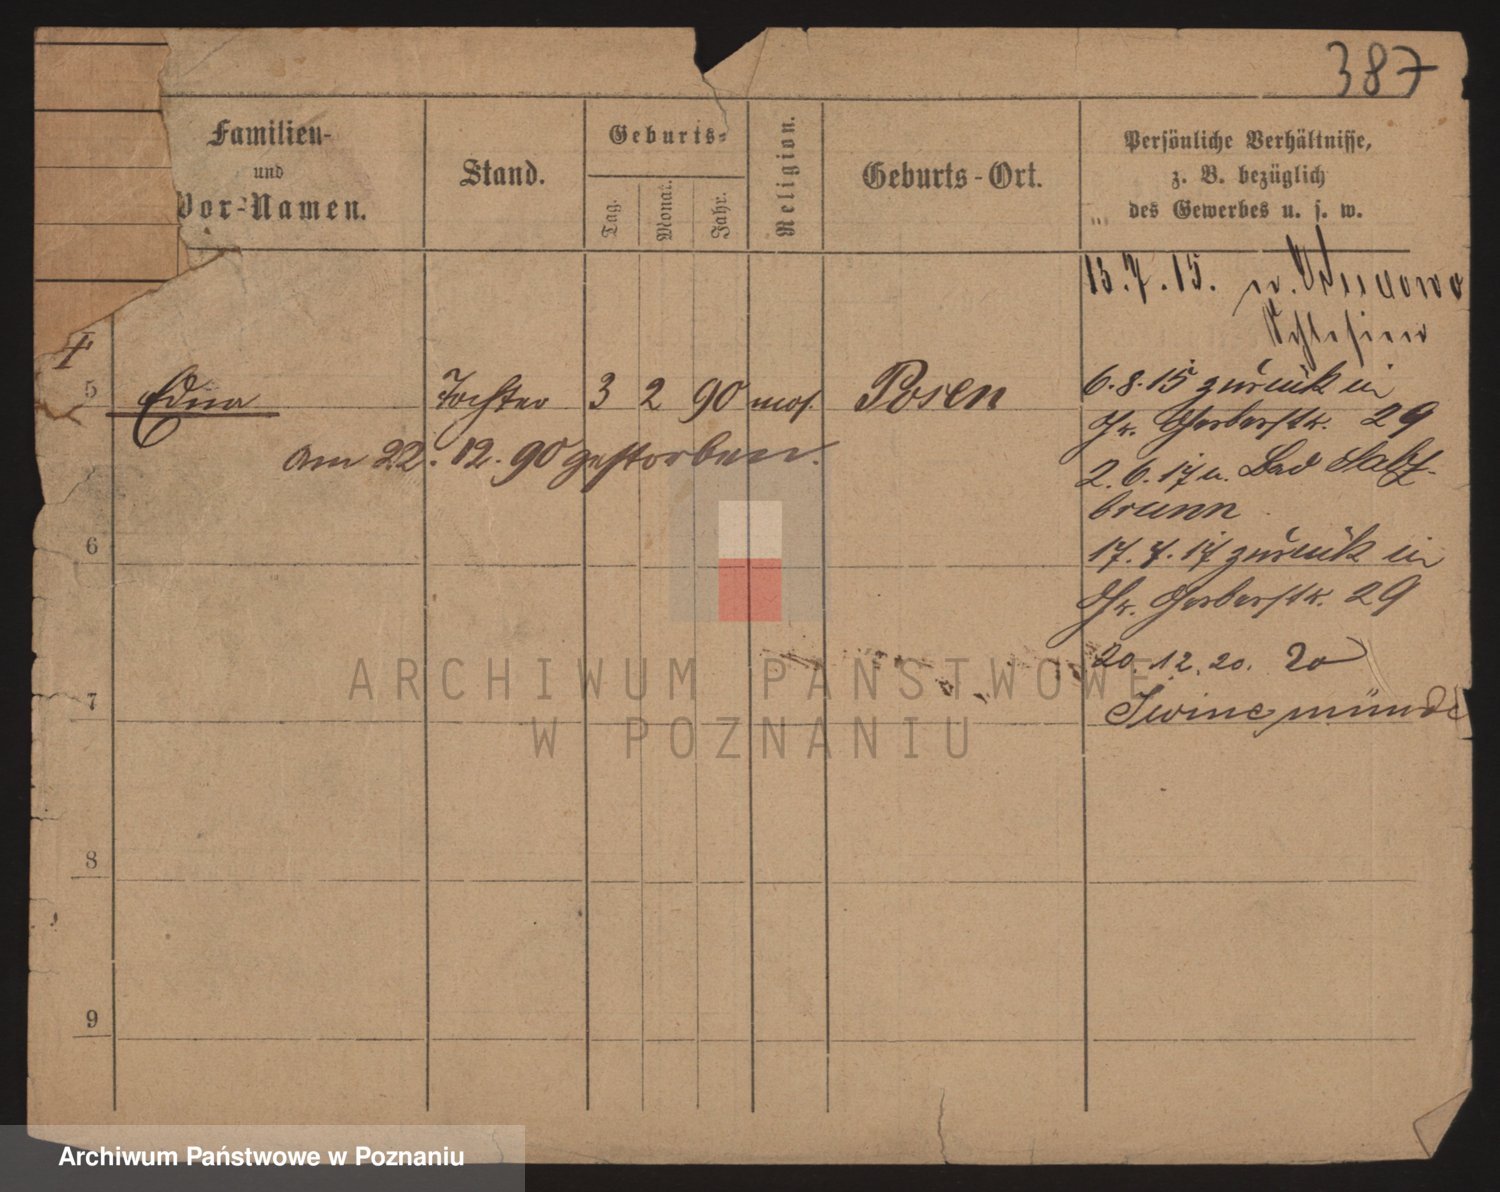 387
Familien-
und
Vor-Namen.
Stand.
Geburts-
Tag.
Monat.
Jahr.
Religion.
Geburts-Ort.
Persönliche Verhältnisse,
z. B. bezüglich
des Gewerbes u. s. w.
13.7.15. n.
Schlesien
4
5 Edna Tochter 3 2 90 mos. Posen
am 22. 12. 90 gestorben.
6.8.15 zurück in
Gr. Gerberstr. 29
2.6.17 n. Bad Salz-
brunn
17.7.17 zurück in
Gr. Gerberstr. 29
20.12.20.
Swinemünde
6
7
8
9
ARCHIWUM PAŃSTWOWE
W POZNANIU
Archiwum Państwowe w Poznaniu